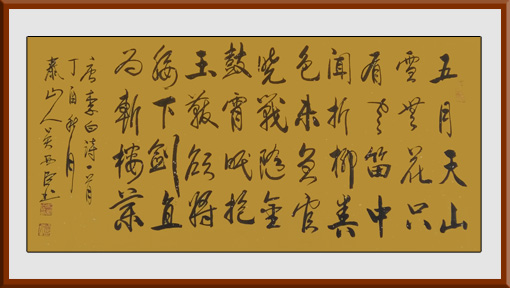 五月天山
雪無花只
有寒笛中
聞折柳春
色未曾看
曉戰隨金
鼓宵眠抱
玉鞍願將
腰下劍直
為斬樓蘭
唐李白詩一首
丁酉秋月
泰山人吳